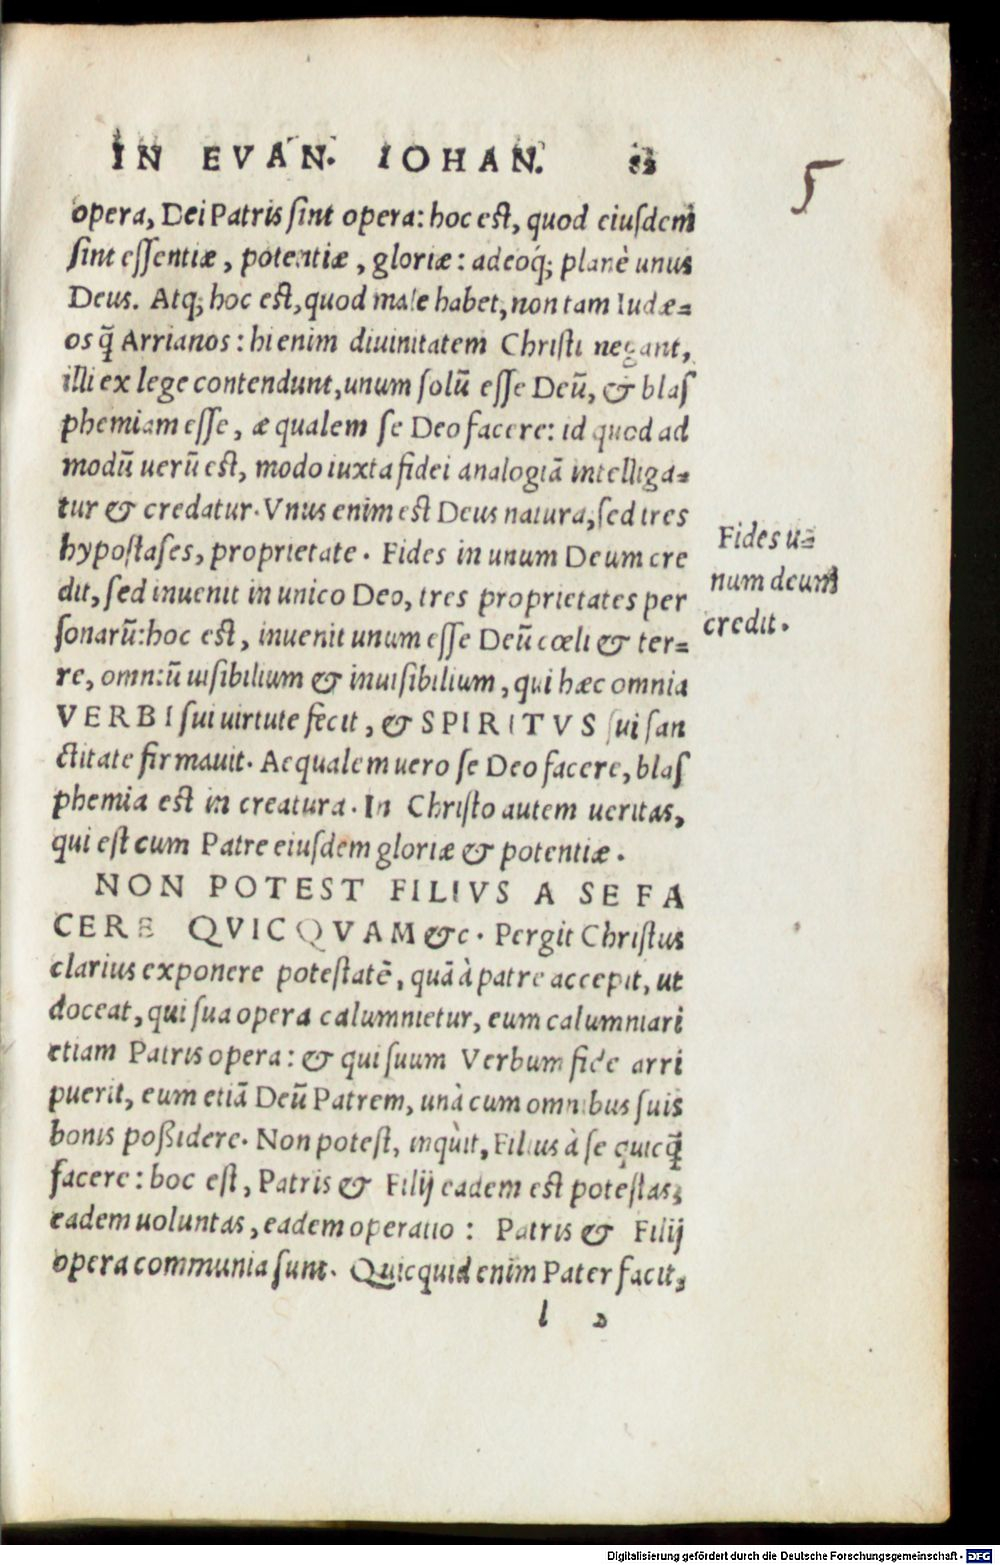 IN EVAN. IOHAN. 82
5
opera, Dei Patris ſint opera: hoc eſt, quod eiuſdem
ſint eſſentiæ, potentiæ, gloriæ: adeoq́; planè unus
Deus. Atq; hoc eſt, quod male habet, non tam Iudæ-
os q̃ Arrianos: hi enim diuinitatem Chriſti negant,
illi ex lege contendunt, unum ſolũ eſſe Deũ, & blaſ
phemiam eſſe, æqualem ſe Deo facere: id quod ad
modũ uerũ eſt, modo iuxta fidei analogiã intelliga-
tur & credatur. Vnus enim eſt Deus natura, ſed tres
hypoſtaſes, proprietate. Fides in unum Deum cre
dit, ſed inuenit in unico Deo, tres proprietates per
ſonarũ: hoc eſt, inuenit unum eſſe Deũ cœli & ter-
re, omniũ uiſibilium & inuiſibilium, qui hæc omnia
VERBI ſui uirtute fecit, & SPIRITVS ſui ſan
ctitate firmauit. Aequalem uero ſe Deo facere, blaſ
phemia eſt in creatura. In Chriſto autem ueritas,
qui eſt cum Patre eiuſdem gloriæ & potentiæ.
Fides u-
num deum
credit.
NON POTEST FILIVS A SE FA
CERE QVICQVAM &c. Pergit Chriſtus
clarius exponere poteſtatẽ, quã à patre accepit, ut
doceat, qui ſua opera calumnietur, eum calumniari
etiam Patris opera: & qui ſuum Verbum fide arri
puerit, eum etiã Deũ Patrem, unà cum omnibus ſuis
bonis poßidere. Non poteſt, inquit, Filius à ſe quicq̃
facere: hoc eſt, Patris & Filij eadem eſt poteſtas,
eadem uoluntas, eadem operatio: Patris & Filij
opera communia ſunt. Quicquid enim Pater facit,
l 2
Digitalisierung gefördert durch die Deutsche Forschungsgemeinschaft - DFG